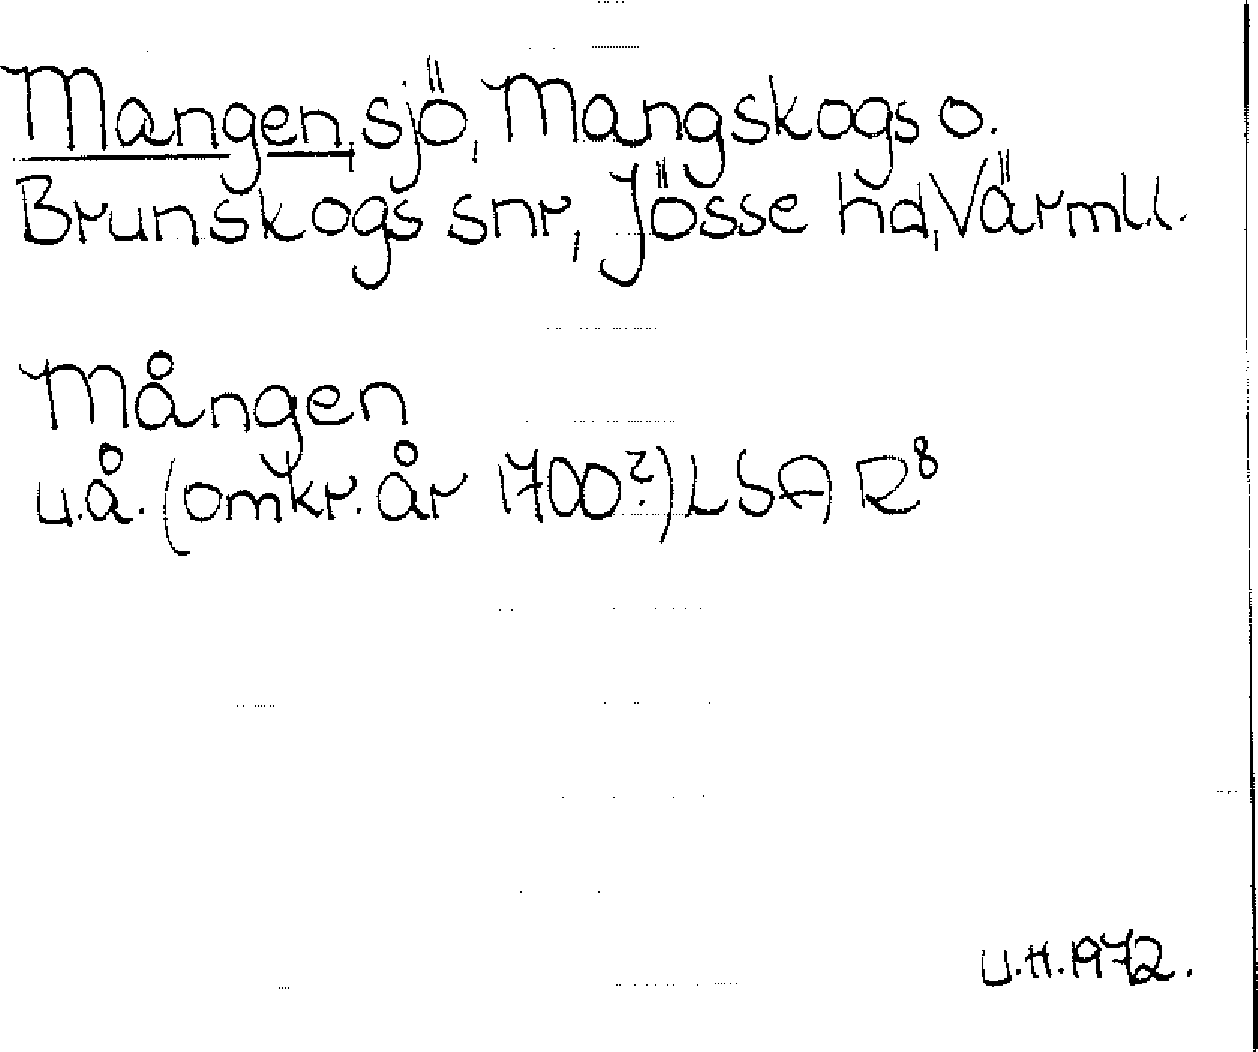 Mangen, sjö, Mangskogs o.
Brunskogs snr, Jösse hd, Värml.l.
Mången
u.å. (omkr. år 1700?) LSA R8
U.H. 1972.